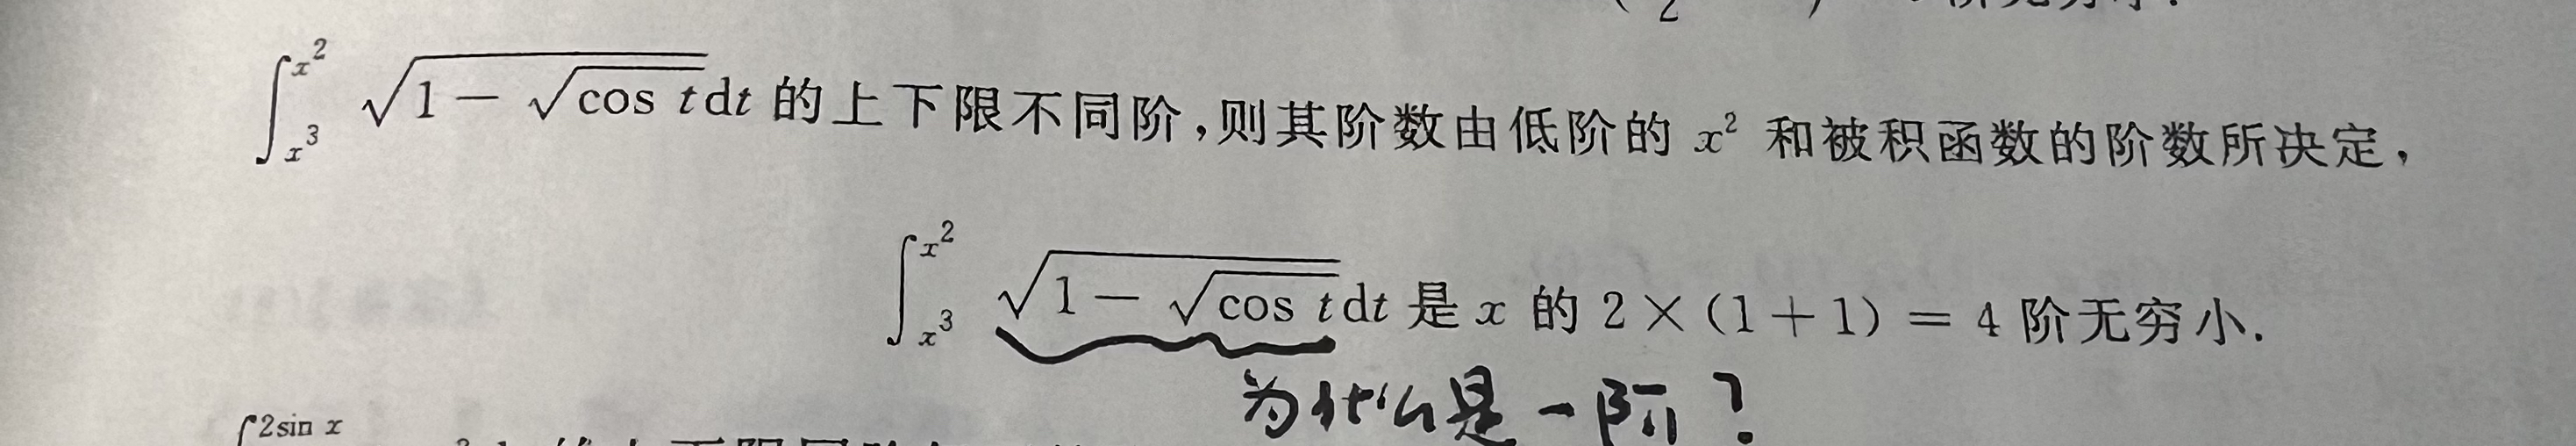 ∫_{x^3}^{x^2} √(1 − √(cos t)) dt 的上下限不同阶,则其阶数由低阶的 x^2 和被积函数的阶数所决定,
∫_{x^3}^{x^2} √(1 − √(cos t)) dt 是 x 的 2×(1+1)=4 阶无穷小.
为什么是一阶?
∫^{2sin x}